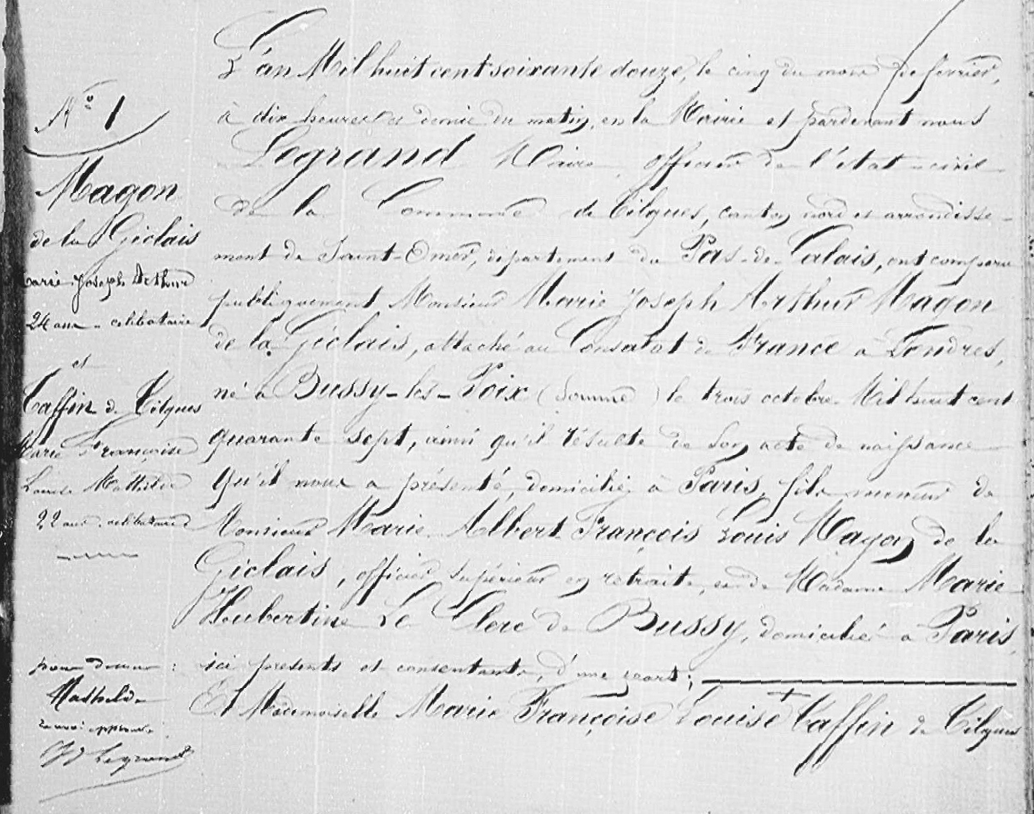 N° 1
Magon
de la Giclais
Marie Joseph Arthur
24 ans - célibataire
et
Taffin de Tilques
Marie Françoise
Louise Mathilde
22 ans. célibataire
L'an Mil huit cent soixante douze, le cinq du mois de février,
à dix heures et demie du matin, en la Mairie et pardevant nous
Legrand Maire, officier de l'état-civil
de la Commune de Tilques, canton nord et arrondisse-
ment de Saint-Omer, département du Pas-de-Calais, ont comparu
publiquement Monsieur Marie Joseph Arthur Magon
de la Giclais, attaché au Consulat de France à Londres,
né à Bussy-lès-Poix (Somme) le trois octobre Mil huit cent
quarante sept, ainsi qu'il résulte de son acte de naissance
qu'il nous a présenté, domicilié à Paris, fils mineur de
Monsieur Marie Albert François Louis Magon de la
Giclais, officier supérieur en retraite, et de Madame Marie
Hubertine Le Clerc de Bussy, domiciliés à Paris,
ici présents et consentants, d'une part;
Et Mademoiselle Marie Françoise Louise + Taffin de Tilques
Mathilde
renvoi approuvé.
Legrand